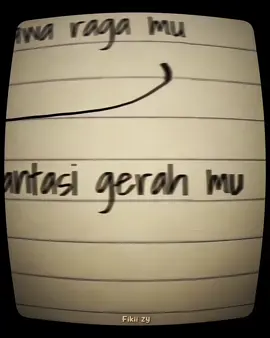 awa raga mu
antasi gerah mu
Fikii zy